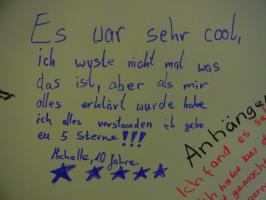 Es war sehr cool,
ich wyste nicht mal was
das ist, aber als mir
alles erklärt wurde habe
ich alles verstanden ich gebe
eu 5 Sterne!!!
Michelle, 10 Jahre
Anhänger
Ich fand es se
ich habt bei d
gemach
gern